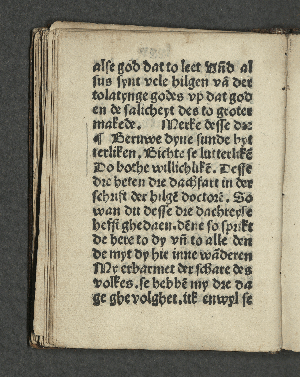 alse god dat to leet Vñd al
sus synt vele hilgen vā der
tolatynge godes vp dat god
en de salicheyt des to groter
makede. Merke desse dre
¶ Beruwe dyne sunde byt
terliken. Bichte se lutterlikē
Do bothe willichlikē. Desse
dre heten dre dachfart in der
schrift der hilgē doctorē. So
wan du desse dre dachreyse
hefft ghedaen. dēne so sprikt
de here to dy vñ to alle den
de myt dy hir inne wāderen
My erbarmet der schare des
volkes. se hebbē my dre da
ge ghe volghet. ick enwyl se